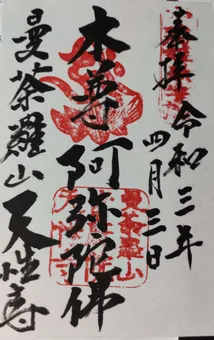 奉拝 令和三年
四月三日
本尊 阿弥陀佛
曼荼羅山 天性寺
曼荼羅山